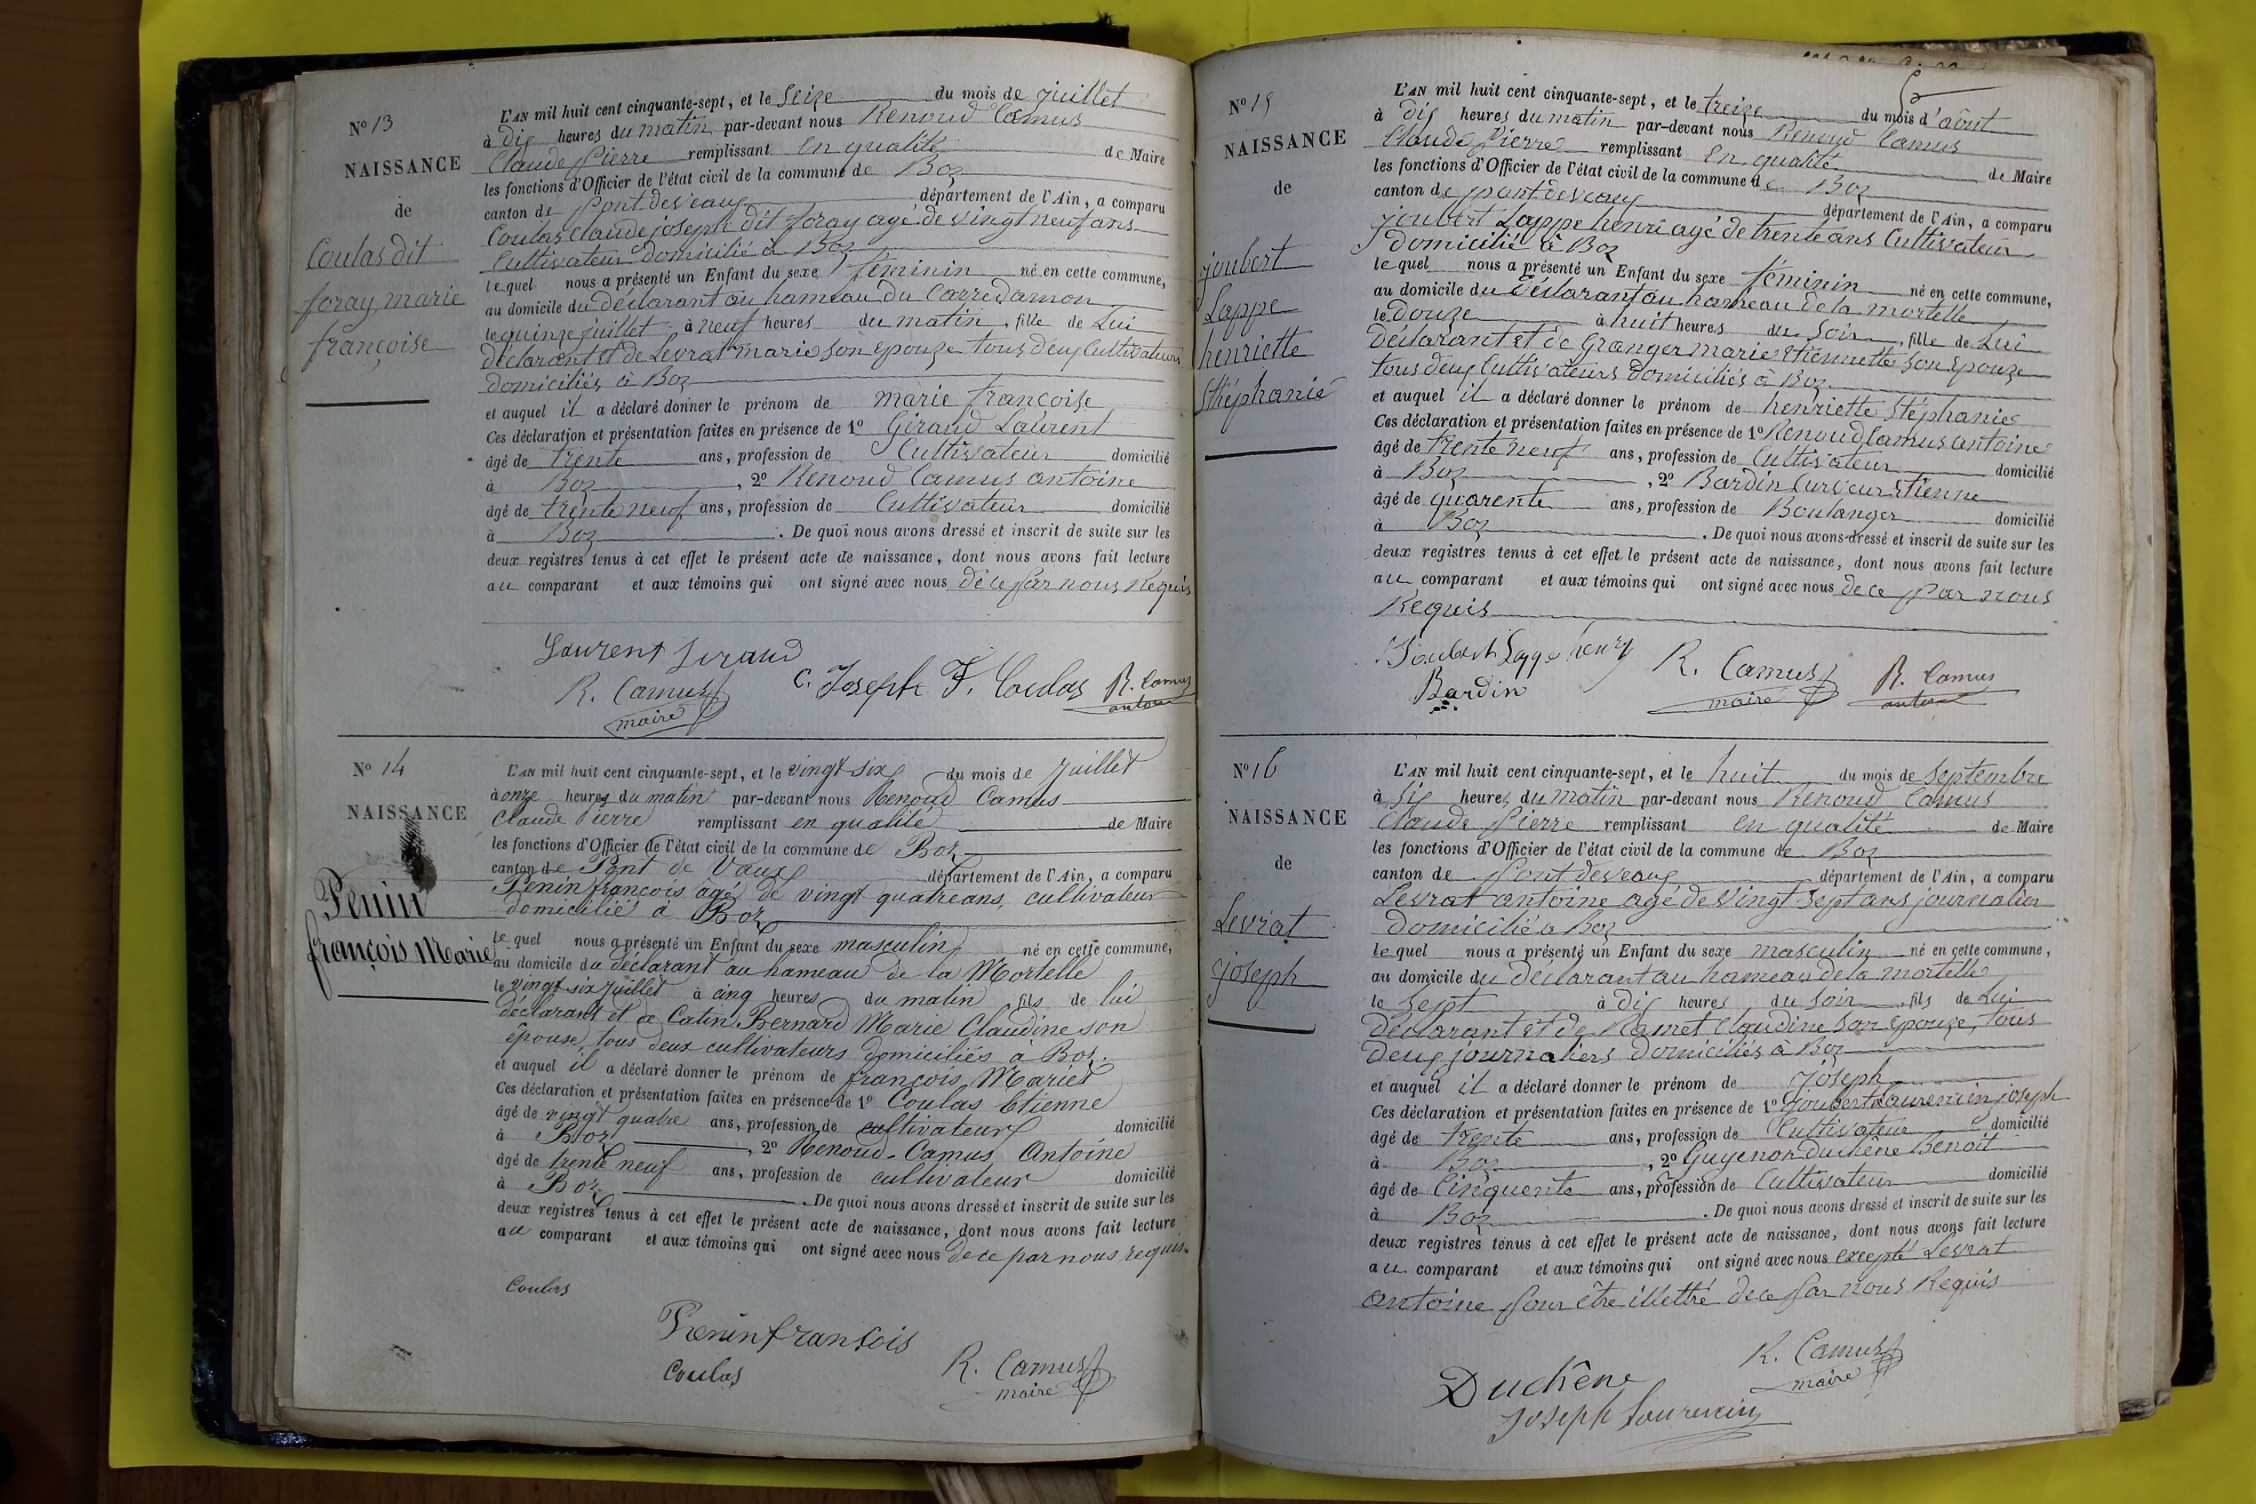 N° 13
NAISSANCE
de
Coulas dit
foray marie
françoise
L'AN mil huit cent cinquante-sept, et le Seize du mois de juillet
à dix heures du matin par-devant nous Renoud Camus
Claude Pierre remplissant en qualité de Maire
les fonctions d'Officier de l'état civil de la commune de Boz
canton de Pont de veaux département de l'Ain, a comparu
Coulas Claude joseph dit foray agé de vingt neuf ans
Cultivateur domicilié à Boz
lequel nous a présenté un Enfant du sexe féminin né en cette commune,
au domicile du déclarant au hameau du Carre damon
le quinze juillet à neuf heures du matin, fille de Lui
déclarant et de Levrat marie son epouze tous deux Cultivateurs
domiciliés à Boz
et auquel il a déclaré donner le prénom de marie françoise
Ces déclaration et présentation faites en présence de 1° Giraud Laurent
âgé de trente ans, profession de Cultivateur domicilié
à Boz, 2° Renoud Camus antoine
âgé de trente neuf ans, profession de Cultivateur domicilié
à Boz. De quoi nous avons dressé et inscrit de suite sur les
deux registres tenus à cet effet le présent acte de naissance, dont nous avons fait lecture
au comparant et aux témoins qui ont signé avec nous de ce par nous Requis
Laurent Giraud
C. Joseph F. Coulas
R. Camus
maire
R. Camus
antoine
N° 14
NAISSANCE
Penin
françois Marie
L'AN mil huit cent cinquante-sept, et le vingt-six du mois de Juillet
à onze heures du matin par-devant nous Renoud Camus
Claude Pierre remplissant en qualité de Maire
les fonctions d'Officier de l'état civil de la commune de Boz
canton de Pont de Vaux département de l'Ain, a comparu
Penin françois âgé de vingt quatre ans, cultivateur
domicilié à Boz
lequel nous a présenté un Enfant du sexe masculin né en cette commune,
au domicile du déclarant au hameau de la Mortelle
le vingt six Juillet à cinq heures du matin fils de lui
déclarant et de Catin Bernard Marie Claudine son
épouse, tous deux cultivateurs domiciliés à Boz.
et auquel il a déclaré donner le prénom de françois Marie
Ces déclaration et présentation faites en présence de 1° Coulas Etienne
âgé de vingt quatre ans, profession de cultivateur domicilié
à Boz, 2° Renoud-Camus Antoine
âgé de trente neuf ans, profession de cultivateur domicilié
à Boz. De quoi nous avons dressé et inscrit de suite sur les
deux registres tenus à cet effet le présent acte de naissance, dont nous avons fait lecture
au comparant et aux témoins qui ont signé avec nous de ce par nous requis.
Coulas
Penin françois
Coulas
R. Camus
maire
N° 15
NAISSANCE
de
joubert
Lappe
henriette
Stéphanie
L'AN mil huit cent cinquante-sept, et le treize du mois d'aôut
à dix heures du matin par-devant nous Renoud Camus
Claude Pierre remplissant en qualité de Maire
les fonctions d'Officier de l'état civil de la commune de Boz
canton de pont de veaux département de l'Ain, a comparu
joubert Lappe henri agé de trente ans Cultivateur
domicilié à Boz
lequel nous a présenté un Enfant du sexe féminin né en cette commune,
au domicile du déclarant au hameau de la mortelle
le douze à huit heures du Soir, fille de Lui
déclarant et de Granger marie Etiennette son epouze
tous deux Cultivateurs domiciliés à Boz
et auquel il a déclaré donner le prénom de henriette Stéphanie
Ces déclaration et présentation faites en présence de 1° Renoud Camus antoine
âgé de trente neuf ans, profession de Cultivateur domicilié
à Boz, 2° Bardin Curveur Etienne
âgé de quarente ans, profession de Boulanger domicilié
à Boz. De quoi nous avons dressé et inscrit de suite sur les
deux registres tenus à cet effet le présent acte de naissance, dont nous avons fait lecture
au comparant et aux témoins qui ont signé avec nous de ce par nous
Requis
Joubert Lappe henry
Bardin
R. Camus
maire
R. Camus
antoine
N° 16
NAISSANCE
de
Levrat
joseph
L'AN mil huit cent cinquante-sept, et le huit du mois de septembre
à six heures du matin par-devant nous Renoud Camus
Claude Pierre remplissant en qualité de Maire
les fonctions d'Officier de l'état civil de la commune de Boz
canton de Pont de veaux département de l'Ain, a comparu
Levrat antoine agé de vingt sept ans journalier
domicilié à Boz
lequel nous a présenté un Enfant du sexe masculin né en cette commune,
au domicile du déclarant au hameau de la mortelle
le sept à dix heures du soir, fils de Lui
déclarant et de Ramet Claudine son epouze, tous
deux journaliers domiciliés à Boz
et auquel il a déclaré donner le prénom de joseph
Ces déclaration et présentation faites en présence de 1° joubert Laurencin joseph
âgé de trente ans, profession de Cultivateur domicilié
à Boz, 2° Guyenon duchêne Benoit
âgé de Cinquente ans, profession de Cultivateur domicilié
à Boz. De quoi nous avons dressé et inscrit de suite sur les
deux registres tenus à cet effet le présent acte de naissance, dont nous avons fait lecture
au comparant et aux témoins qui ont signé avec nous excepté Levrat
antoine pour être illettré de ce par nous Requis
R. Camus
maire
Duchêne
Joseph Laurencin